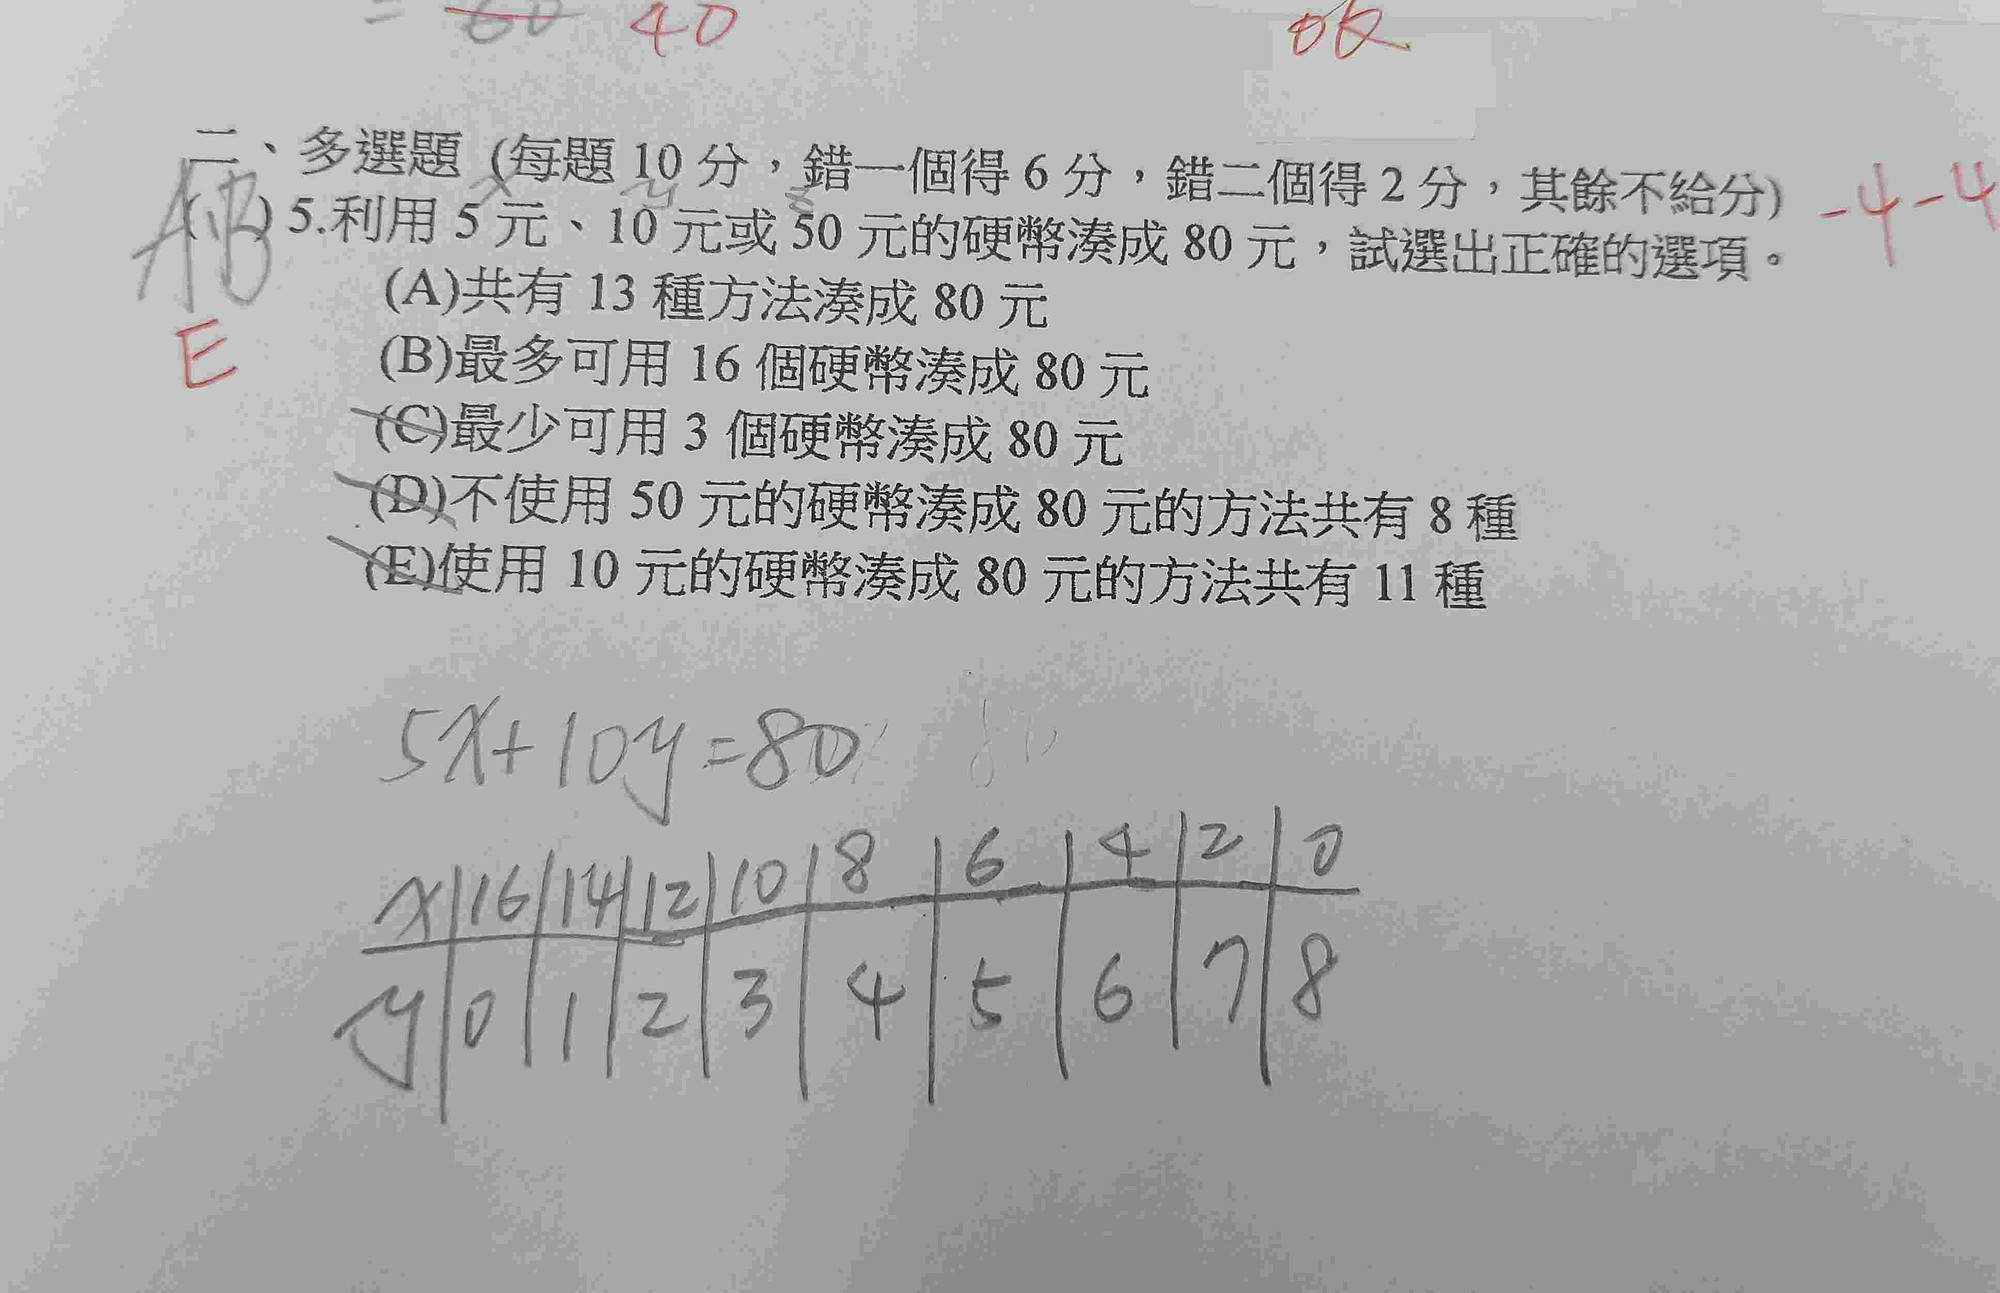 = 60 40 ok
二、多選題 (每題 10 分，錯一個得 6 分，錯二個得 2 分，其餘不給分) -4-4
x y z
(AB) 5.利用 5 元、10 元或 50 元的硬幣湊成 80 元，試選出正確的選項。
(A)共有 13 種方法湊成 80 元
E (B)最多可用 16 個硬幣湊成 80 元
(C)最少可用 3 個硬幣湊成 80 元
(D)不使用 50 元的硬幣湊成 80 元的方法共有 8 種
(E)使用 10 元的硬幣湊成 80 元的方法共有 11 種
5x+10y=80 80
x 16 14 12 10 8 6 4 2 0
y 0 1 2 3 4 5 6 7 8